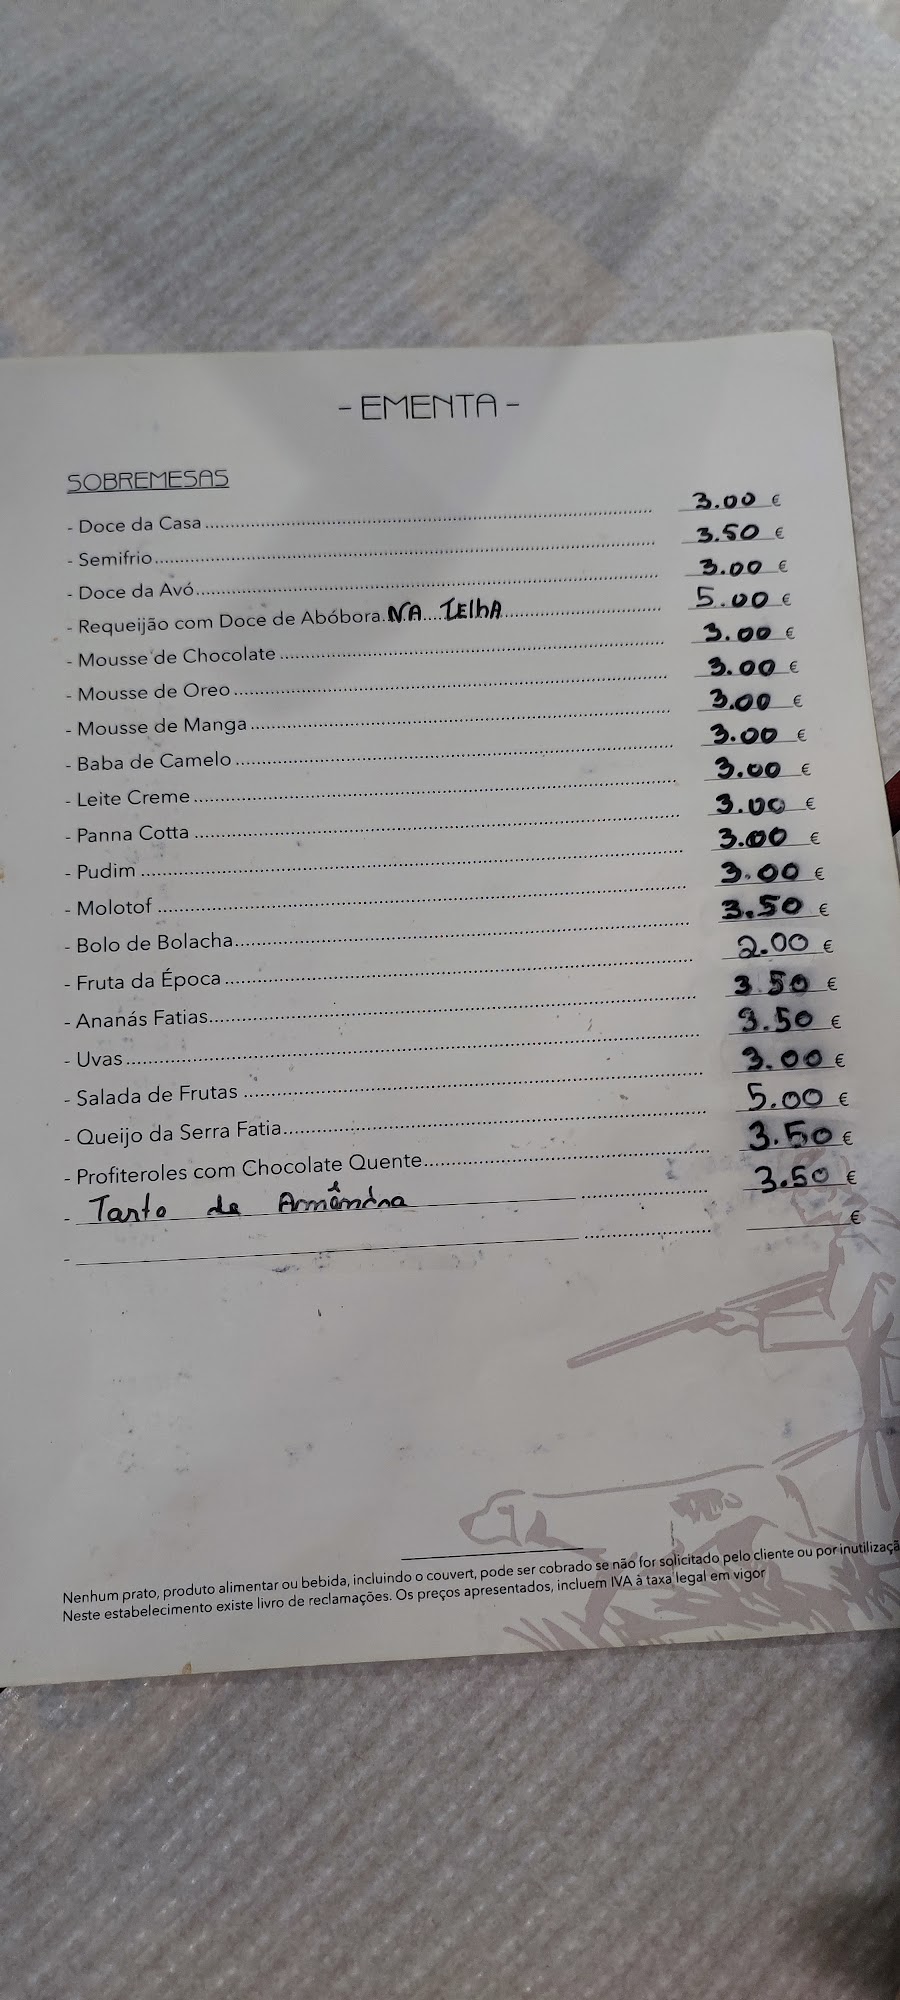 - EMENTA -
SOBREMESAS
- Doce da Casa 3.00 €
- Semifrio 3.50 €
- Doce da Avó 3.00 €
- Requeijão com Doce de Abóbora NA TElhA 5.00 €
- Mousse de Chocolate 3.00 €
- Mousse de Oreo 3.00 €
- Mousse de Manga 3.00 €
- Baba de Camelo 3.00 €
- Leite Creme 3.00 €
- Panna Cotta 3.00 €
- Pudim 3.00 €
- Molotof 3.00 €
- Bolo de Bolacha 3.50 €
- Fruta da Época 2.00 €
- Ananás Fatias 3.50 €
- Uvas 3.50 €
- Salada de Frutas 3.00 €
- Queijo da Serra Fatia 5.00 €
- Profiteroles com Chocolate Quente 3.50 €
- Tarto de Amêndoa 3.50 €
- €
Nenhum prato, produto alimentar ou bebida, incluindo o couvert, pode ser cobrado se não for solicitado pelo cliente ou por inutilizaçã
Neste estabelecimento existe livro de reclamações. Os preços apresentados, incluem IVA à taxa legal em vigor